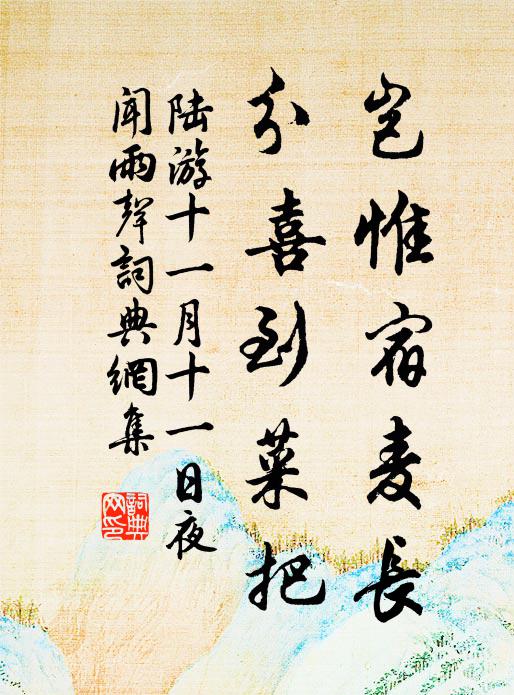 岂惟宿麦长
分喜到菜把
陆游十一月十一日夜
闻雨声词典網集
詞典
网印